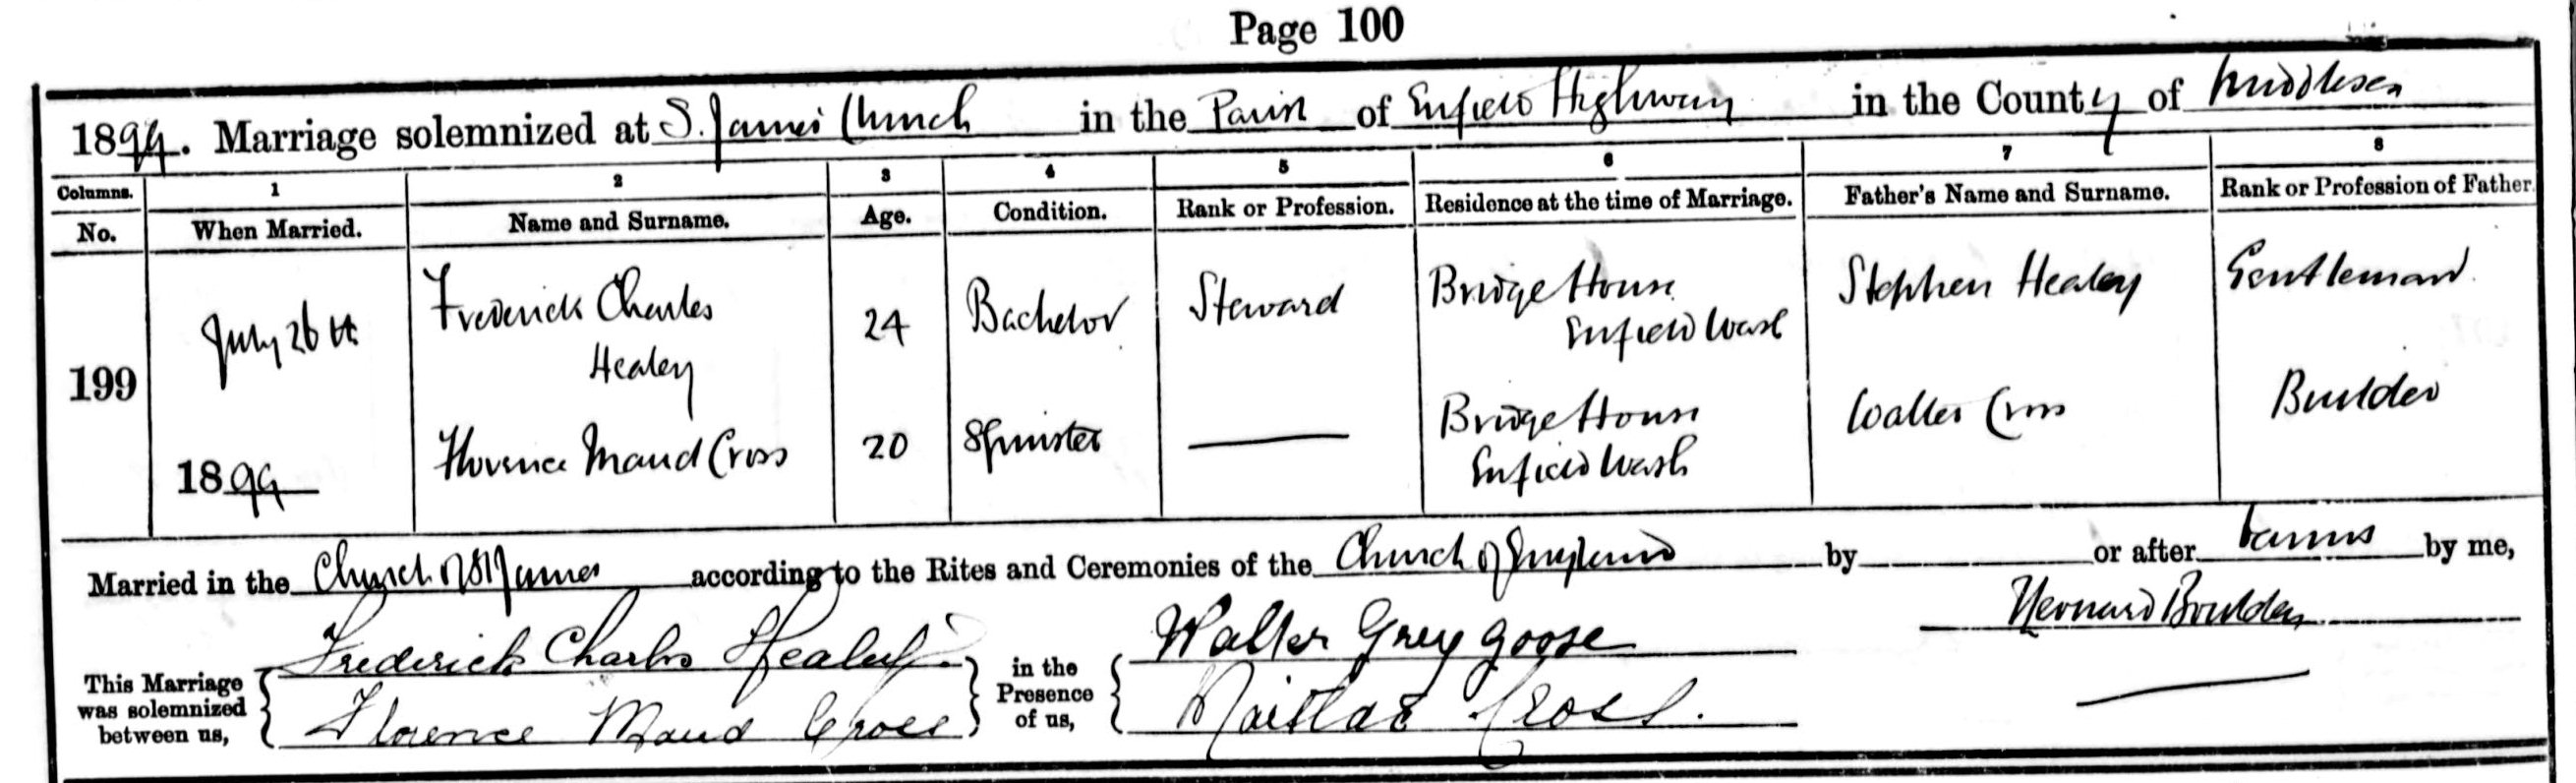 Page 100
1899. Marriage solemnized at S. James Church in the Parish of Enfield Highway in the County of Middlesex
Columns. 1 2 3 4 5 6 7 8
No. When Married. Name and Surname. Age. Condition. Rank or Profession. Residence at the time of Marriage. Father's Name and Surname. Rank or Profession of Father
199
July 26th
1899
Frederick Charles
Healey
24
Bachelor
Steward
Bridge House
Enfield Wash
Stephen Healey
Gentleman
Florence Maud Cross
20
Spinster
Bridge House
Enfield Wash
Walter Cross
Builder
Married in the Church of St James according to the Rites and Ceremonies of the Church of England by or after banns by me,
This Marriage was solemnized between us,
Frederick Charles Healey
Florence Maud Cross
in the Presence of us,
Walter Grey goose
Cross.
Boulden